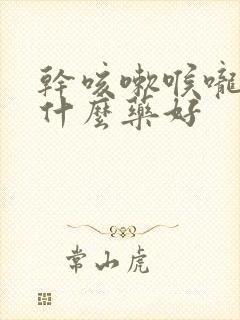 幹咳嗽喉嚨
什麼藥好
常山虎